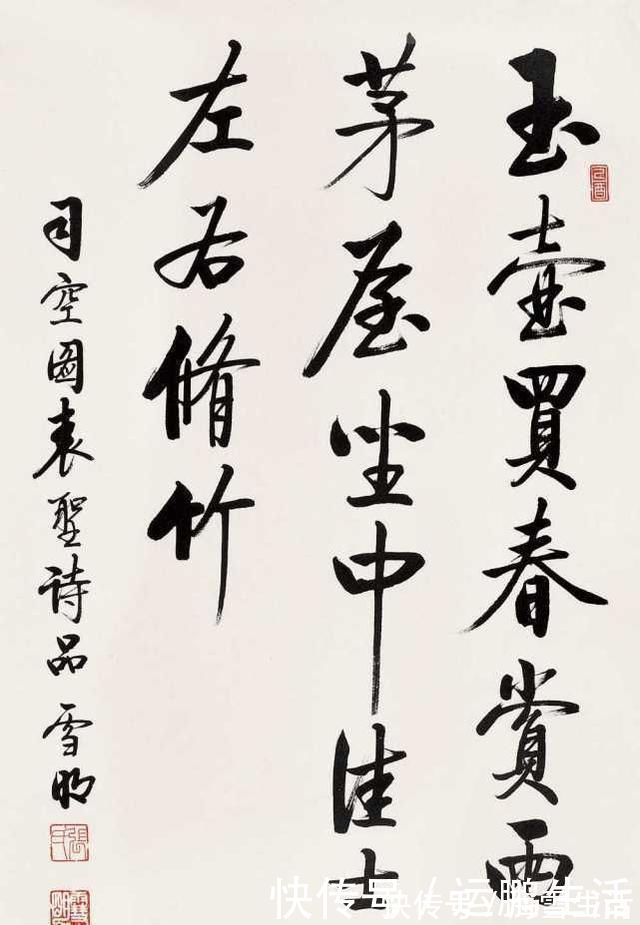 玉壺買春賞雨
茅屋坐中佳士
左右脩竹
司空圖表聖诗品 雪明
快传号/运鹏生活